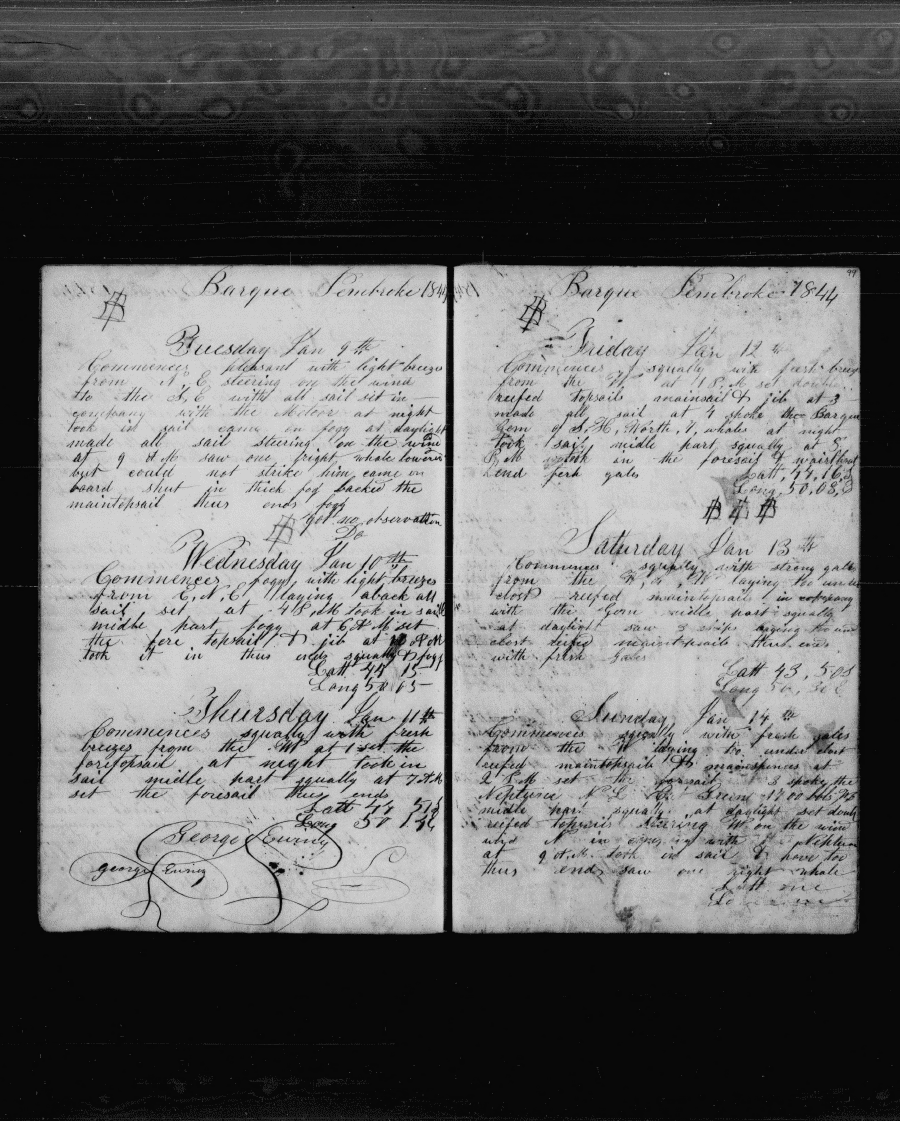 Barque Pembroke 1844
Tuesday Jan 9th
Commences pleasant with light breeze
from N, E steering on the wind
to the S, E with all sail set in
company with the Meteor at night
took in sail came on fogg at daylight
made all sail steering on the wind
at 9 A M saw one, fright, whale lowered
but could not strike him came on
board shut in thick fog backed the
maintopsail thus ends fogg
got no observation
Do
Wednesday Jan 10th
Commences fogy with light breezes
from E, N, E laying aback all
sail set at 4 P, M took in sail
midle part fogy at 6 A M set
the fore topsail & jib at 10 A M
took it in thus ends squally & fogy
Latt 44 15
Long 50 05
Thursday Jan 11th
Commences squally with fresh
breezes from the W at 1 set the
foretopsail at night took in
sail midle part squally at 7 A.M
set the foresail thus ends
Latt 44 51 S
Long 50
George Ewing
george Ewing
99
Barque Pembroke 1844
Friday Jan 12th
Commences squally with fresh breeze
from the W. at 1 P. M set double
reefed topsails mainsail & jib at 3
made all sail at 4 spoke the Barque
Gem of S, H, Worth, 7, whales at night
took sail midle part squally at 8
A M took in the foresail &
end fresh gales
Latt, 44, 16, S
Long, 50, 08,
Saturday Jan 13th
Commences squally with strong gale
from the W, S, W laying too under
close reefed maintopsail in company
with the Gem midle part squally
at daylight saw 3 ships laying too under
close reefed maintopsails thus ends
with fresh Gales
Latt 43, 50 S
Long 50, 30
Sunday Jan 14th
Commences squally with fresh gales
from the W laying to under close
reefed maintopsail & mainspencer at
2 P M set the foresail 3 spoke the
Neptune N L Green 1700 bbls
midle part squally at daylight set double
reefed topsails steering W on the wind
in company with Neptune
at 9 A.M. took in sail & hove too
thus ends saw one right whale
Latt